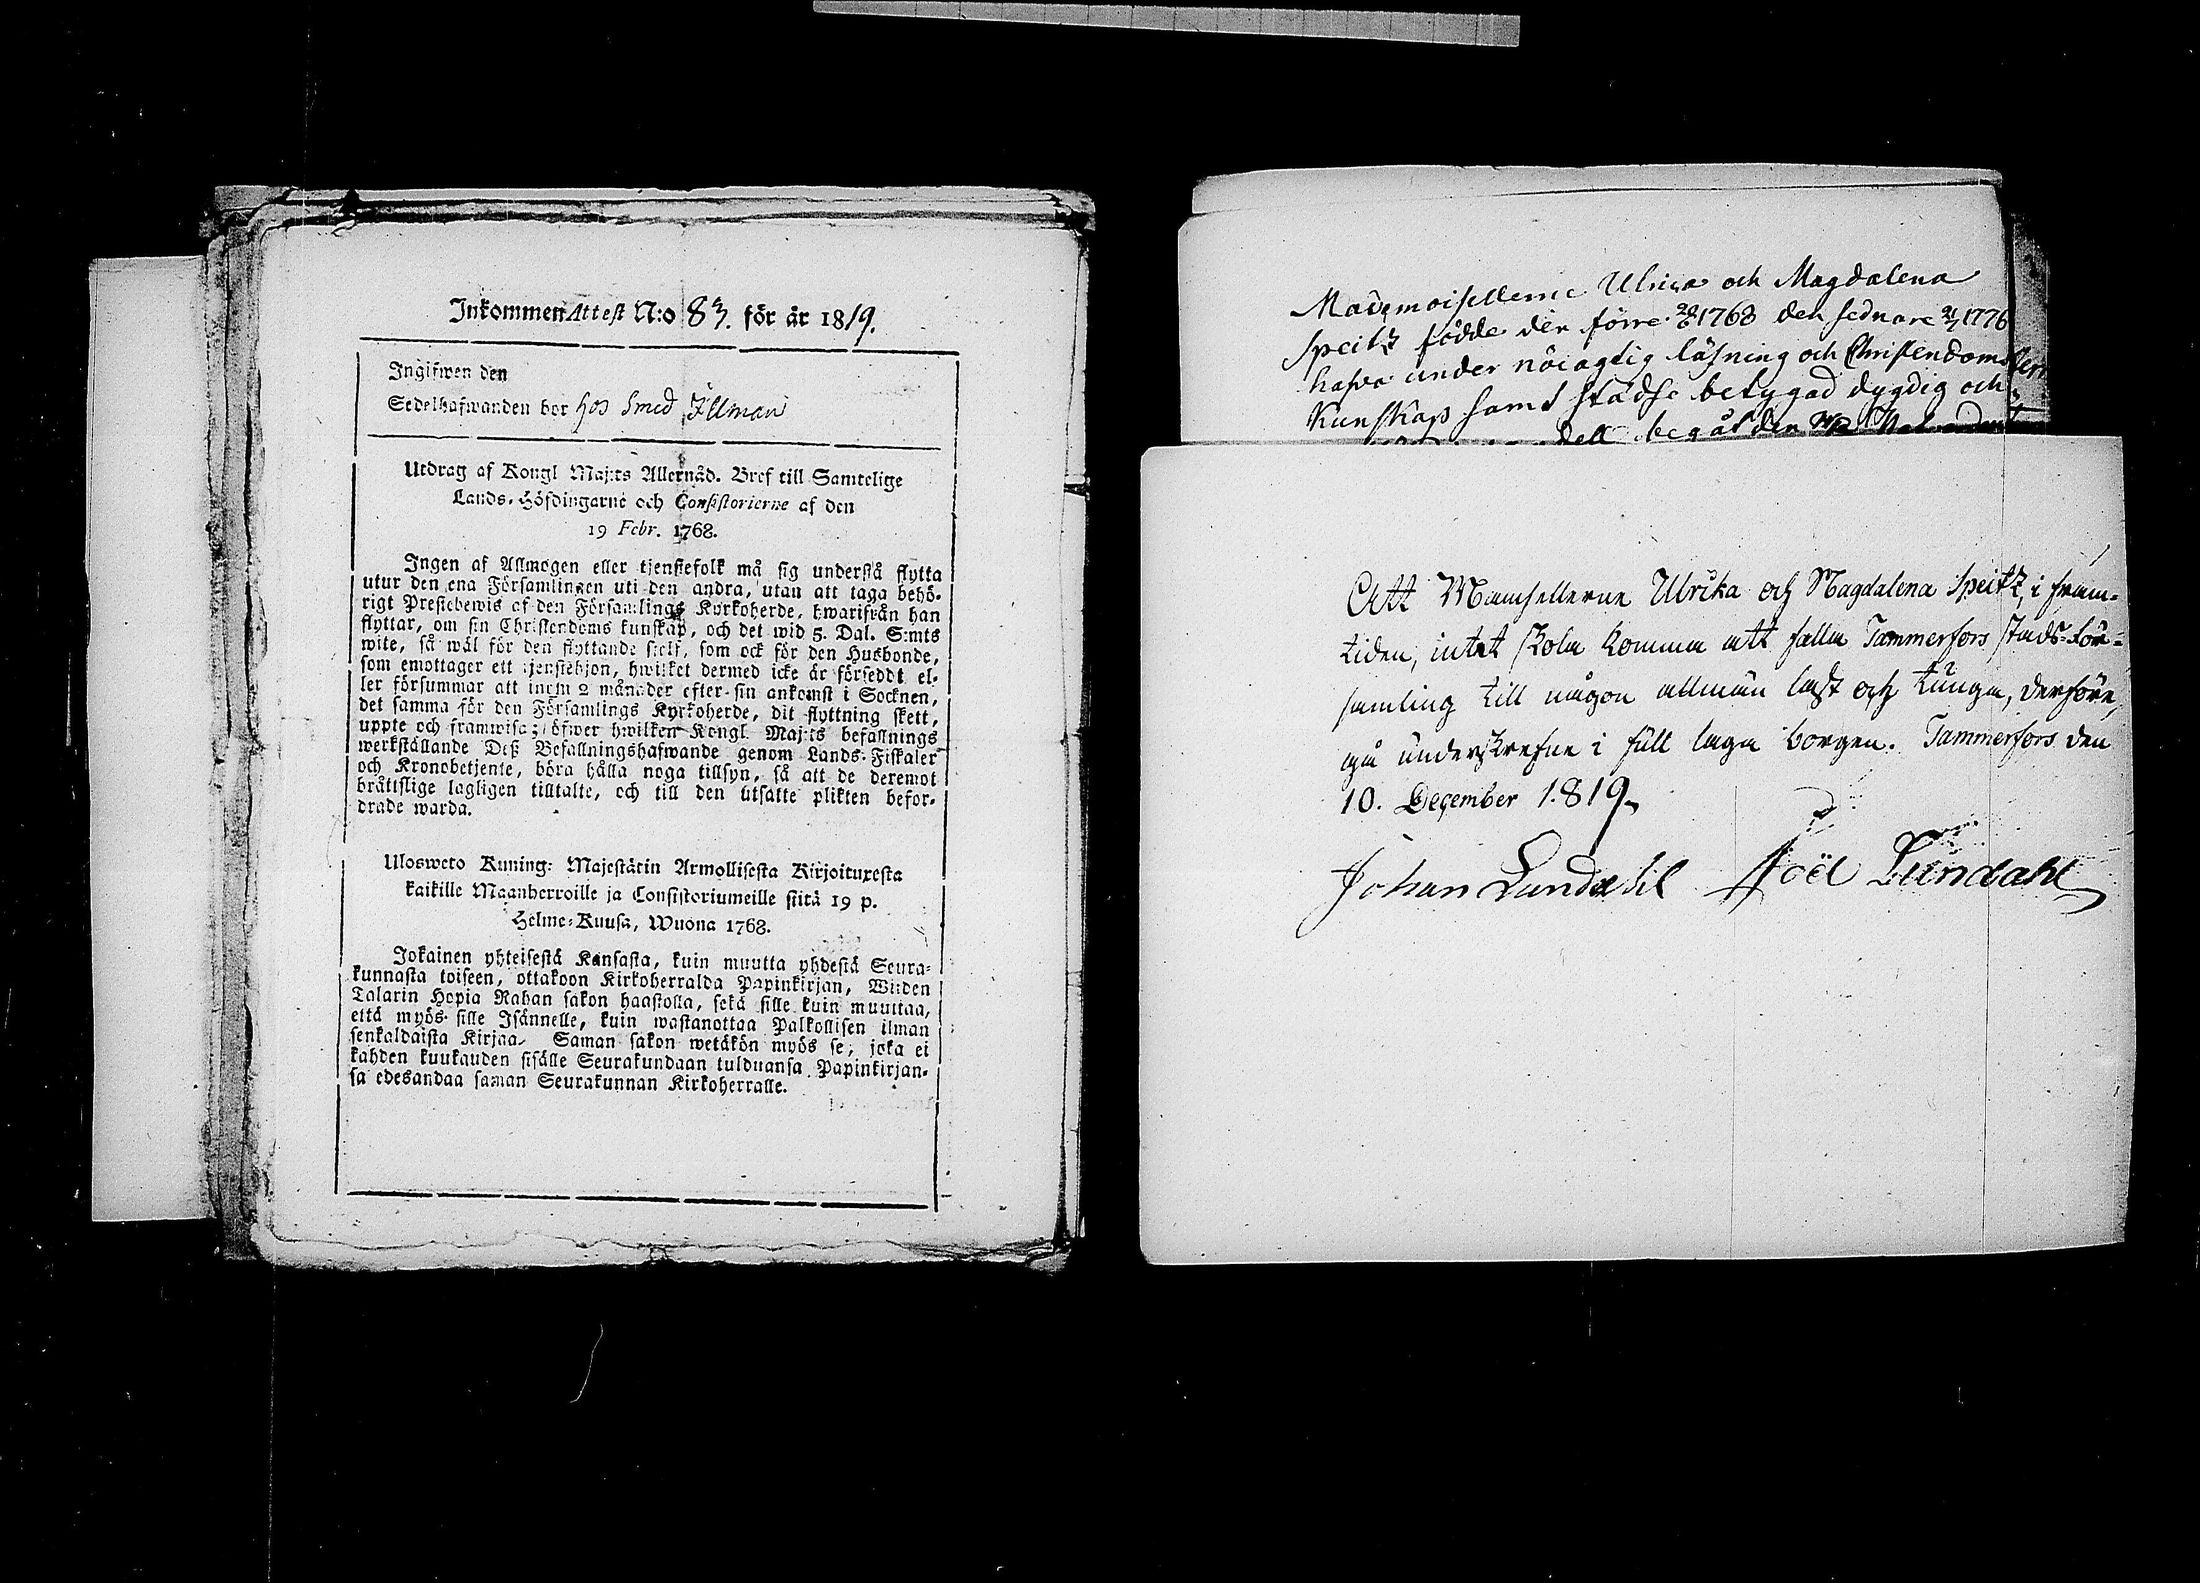 Inkommen Attest N:o 83. för år 1819.
Ingifwen den
Sedelhafwanden bor hos Smed Illman
Utdrag af Kongl Maj:ts Allernåd. Bref till Samtelige
Lands-Höfdingarne och Consistorierne af den
19 Febr. 1768.
Ingen af Allmogen eller tjenstefolk må sig understå flytta
utur den ena Församlingen uti den andra, utan att taga behö-
rigt Prestebewis af den Församlings Kyrkoherde, hwarifrån han
flyttar, om sin Christendoms kunskap, och det wid 5. Dal. S:mts
wite, så wäl för den flyttande sielf, som ock för den Husbonde,
som emottager ett tjenstehjon, hwilket dermed icke är försedt el-
ler försummar att inom 2 månader efter sin ankomst i Socknen,
det samma för den Församlings Kyrkoherde, dit flyttning skett,
uppte och framwisa; öfwer hwilken Kongl. Maj:ts befallnings
werkställande Deß Befallningshafwande genom Lands-Fiskaler
och Kronobetjente, böra hålla noga tillsyn, så att de deremot
bråttslige lagligen tilltalte, och till den utsatte plikten befor-
drade warda.
Ulosweto Kuning: Majestätin Armollisesta Kirjoituxesta
kaikille Maanherroille ja Consistoriumeille siitä 19 p.
Helme-Kuusa, Wuona 1768.
Jokainen yhteisestä Kansasta, kuin muutta yhdestä Seura-
kunnasta toiseen, ottakoon Kirkoherralda Papinkirjan, Wiiden
Talarin Hopia Rahan sakon haastolla, sekä sille kuin muuttaa,
että myös sille Isännelle, kuin wastanottaa Palkollisen ilman
senkaldaista Kirjaa. Saman sakon wetäkön myös se, joka ei
kahden kuukauden sisälle Seurakundaan tulduansa Papinkirjan-
sa edesandaa saman Seurakunnan Kirkoherralle.
Mademoisellerne Ulrica och Magdalena
Speitz födde den förre 1768 den sednare 1776
hafva under nöiagtig läsning och Christendoms
Kunskap samt städse betygad dygdig och
begåt den
Att Mamsellerne Ulrika och Magdalena Speitz, i fram-
tiden, intet skola komma att falla Tammerfors Stads-För-
samling till någon allmän last och tunga, derföre,
gå underskrefne i full laga borgen. Tammerfors den
10. December 1819.
Johan Lundahl Joël Lundahl